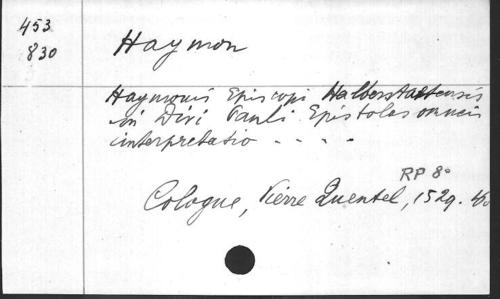 453
830
Haymon
Haymonis Episcopi Halberstattensis
in Divi Pauli Epistolas omneis
interpretatio - - - -
RP 8º
Cologne, Pierre Quentel, 1529.